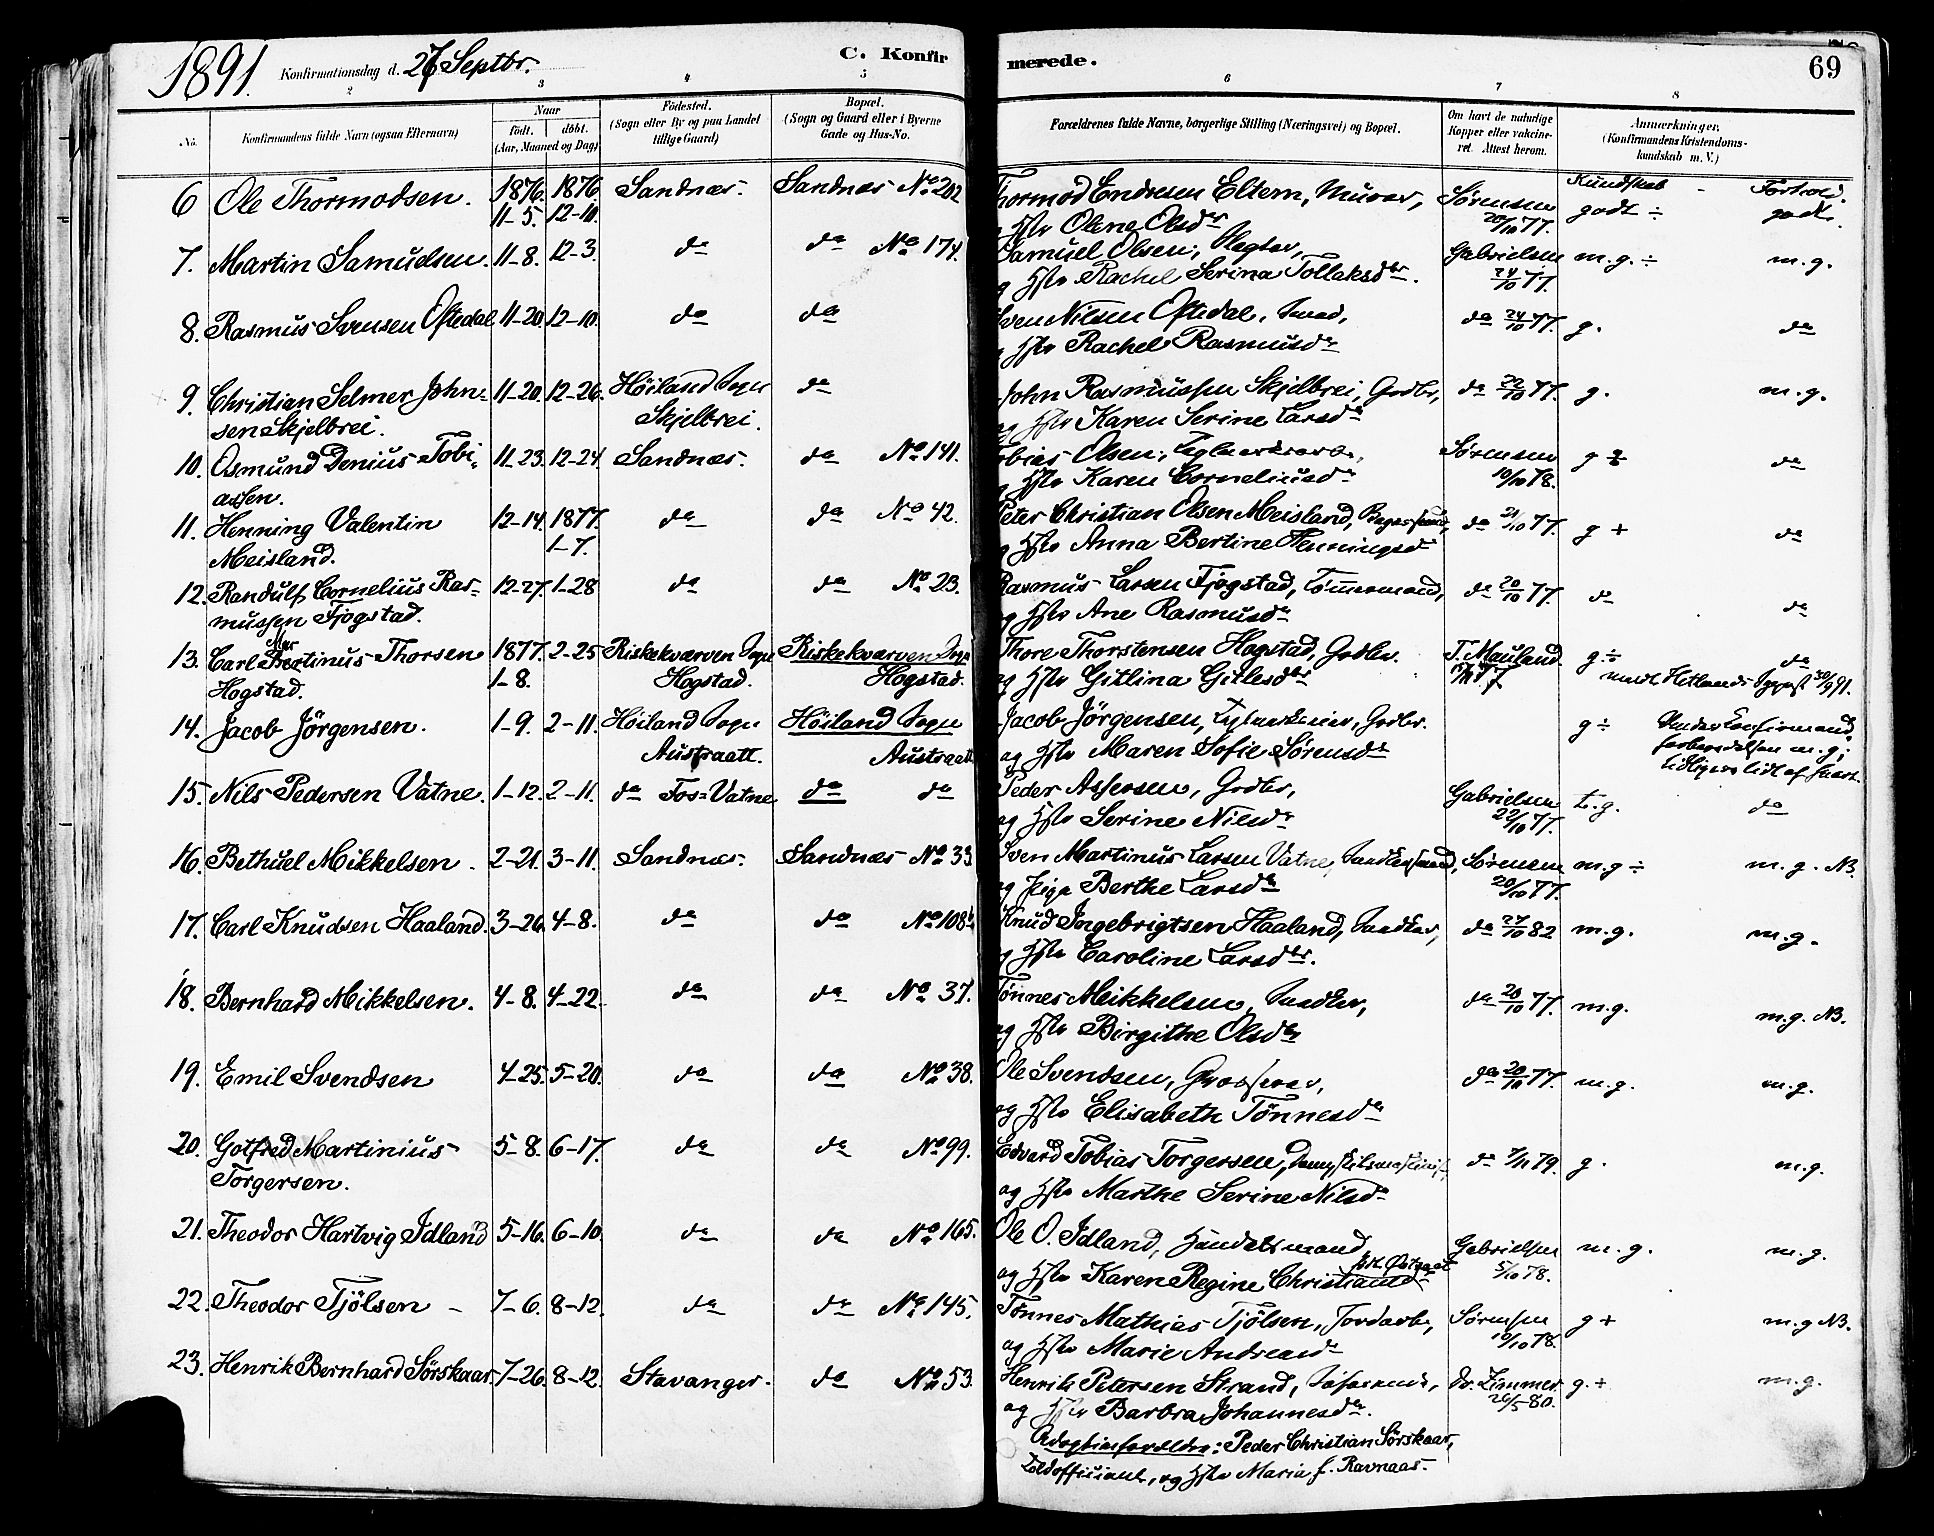 1891. Konfirmationsdag d. 27 Septbr. C. Konfir merede. 69
2 3 4 5 6 7 8
No. Konfirmandens fulde Navn (ogsaa Efternavn) Naar født. døbt. (Aar, Maaned og Dag) Fødested. (Sogn eller By og paa Landet tillige Gaard) Bopæl. (Sogn og Gaard eller i Byerne Gade og Hus-No. Forældrenes fulde Navne, borgerlige Stilling (Næringsvei) og Bopæl. Om havt de naturlige Kopper eller vakcineret. Attest herom. Anmærkninger. (Konfirmandens Kristendomskundskab m. V.)
Kundskab - Forhold.
6 Ole Thormodsen. 1876. 1876 Sandnæs. Sandnæs No 202 Thormod Endresen Eltern, Murer, Sørensen godt ÷ godt.
11-5. 12-10. Hstr Olene Olsdtr 20/10 77.
7. Martin Samuelsen. 11-8. 12-3. do do No 174. Samuel Olsen, Slagter, Gabrielsen m.g. ÷ m.g.
og Hstr Rachel Serina Tollaksdtr. 24/10 77.
8. Rasmus Svensen Oftedal 11-20. 12-10. do do Sven Nilsen Oftedal, Smed, do 24/10 77. g. do
og Hstr Rachel Rasmusdr
9. Christian Selmer John= 11-20. 12-26. Höiland Sogn do John Rasmussen Skjelbrei, Grdbr, do 22/10 77. g. m.g.
sen Skjelbrei. Skjelbrei. og Hstr Karen Serine Larsdr
10. Osmund Denius Tobi= 11-23. 12-24. Sandnæs. do No 141. Tobias Olsen, Sørensen g do
assen. og Hstr Karen Corneliusdr 10/10 78.
11. Henning Valentin 12-14. 1877. do do No 42. Peter Christian Olsen Meisland, do 21/10 77. g + do
Meisland. 1-7. og Hstr Anna Bertine Henningsd
12. Randulf Cornelius Ras= 12-27. 1-28 do do No 23. Rasmus Larsen Fjogstad, Tömmermand, do 20/10 77. do do
mussen Fjogstad. og Hstr Ane Rasmusdr
13. Carl Martinus Thorsen 1877. 2-25 Riskekværven Sogn Riskekværven Sogn Thore Thorstensen Hogstad, Grdbr. T. Mauland. g ÷ do
Hogstad. 1-8. Hogstad. Hogstad. og Hstr Gitlina Gitlesdtr
14. Jacob Jörgensen. 1-9. 2-11. Höiland Sogn Höiland Sogn Jacob Jörgensen, Grdbr. g ÷ Under Konfirmand
Austraatt. Austraatt og Hstr Maren Sofie Sørensdr forberedelsen m.g.;
tidligere lidt af hvert.
15. Nils Pedersen Vatne. 1-12. 2-11. do Fos=Vatne do do Peder Assersen, Grdbr, Gabrielsen t.g. do
og Hstr Serine Nilsdr 22/10 77.
16. Bethuel Mikkelsen. 2-21. 3-11. Sandnæs. Sandnæs No 33 Sven Martinus Larsen Vatne, Sørensen m.g ÷ m.g. NB.
og Pige Berthe Larsdr 20/10 77.
17. Carl Knudsen Haaland. 3-26. 4-8. do do No 108b Knud Ingebrigtsen Haaland, Snedker, do 27/10 82 m.g. m.g.
og Hstr Caroline Larsdtr.
18. Bernhard Mikkelsen. 4-8. 4-22. do do No 37. Tönnes Mikkelsen, Snedker, do 20/10 77. m.g. m.g. NB.
og Hstr Birgithe Olsdtr
19. Emil Svendsen 4-25. 5-20. do do No 38. Ole Svendsen, do 20/10 77. m.g. m.g.
og Hstr Elisabeth Tönnesdr
20. Gotfred Martinius 5-8. 6-17. do do No 99. Edvard Tobias Torgersen, do 7/11 79. g. m.g.
Torgersen. og Hstr Marthe Serine Nilsdr
21. Theodor Hartvig Idland 5-16. 6-10. do do No 165. Ole O. Idland, Handelsmand Gabrielsen m.g. m.g.
og Hstr Karen Regine Christiansd 5/10 78.
22. Theodor Tjölsen - 7-6. 8-12. do do No 145. Tönnes Mathias Tjölsen, Jordarb., Sørensen g + m.g NB.
og Hstr Marie Andreasdr 10/10 78.
23. Henrik Bernhard Sörskaar 7-26. 8-12. Stavanger. do No 53. Henrik Petersen Strand, dr. Zimmer g. + m.g.
og Hstr Barbra Johannesdr. 26/5 80.
Adoptivforældre: Peder Christian Sörskaar,
Toldofficiant, og Hstr Maria f. Ravnaas.